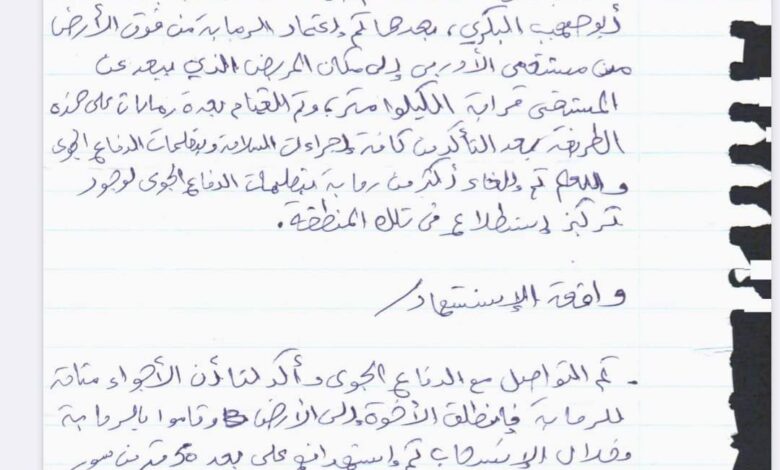 أبو صهيب البكري، بعدها تم إعتماد الرماية من فوق الأرض
من مستشفى الأوربي إلى مكان المربض الذي يبعد عن
المستشفى قرابة الكيلوا متر، وتم القيام بعدة رمايات على هذه
الطريقة بعد التأكد من كافة إجراءات السلامة وتعليمات الدفاع الجوي
وللعلم تم إلغاء أكثر من رماية بتعليمات الدفاع الجوي لوجود
تركيز إستطلاع في تلك المنطقة.
واقعة الإستشهاد/
. تم التواصل مع الدفاع الجوي وأكد لنا أن الأجواء متاحة
للرماية فإنطلق الأخوة إلى الأرض وقاموا بالرماية
وخلال الإنسحاب تم إستهدافهم على بعد 50 متر من سور